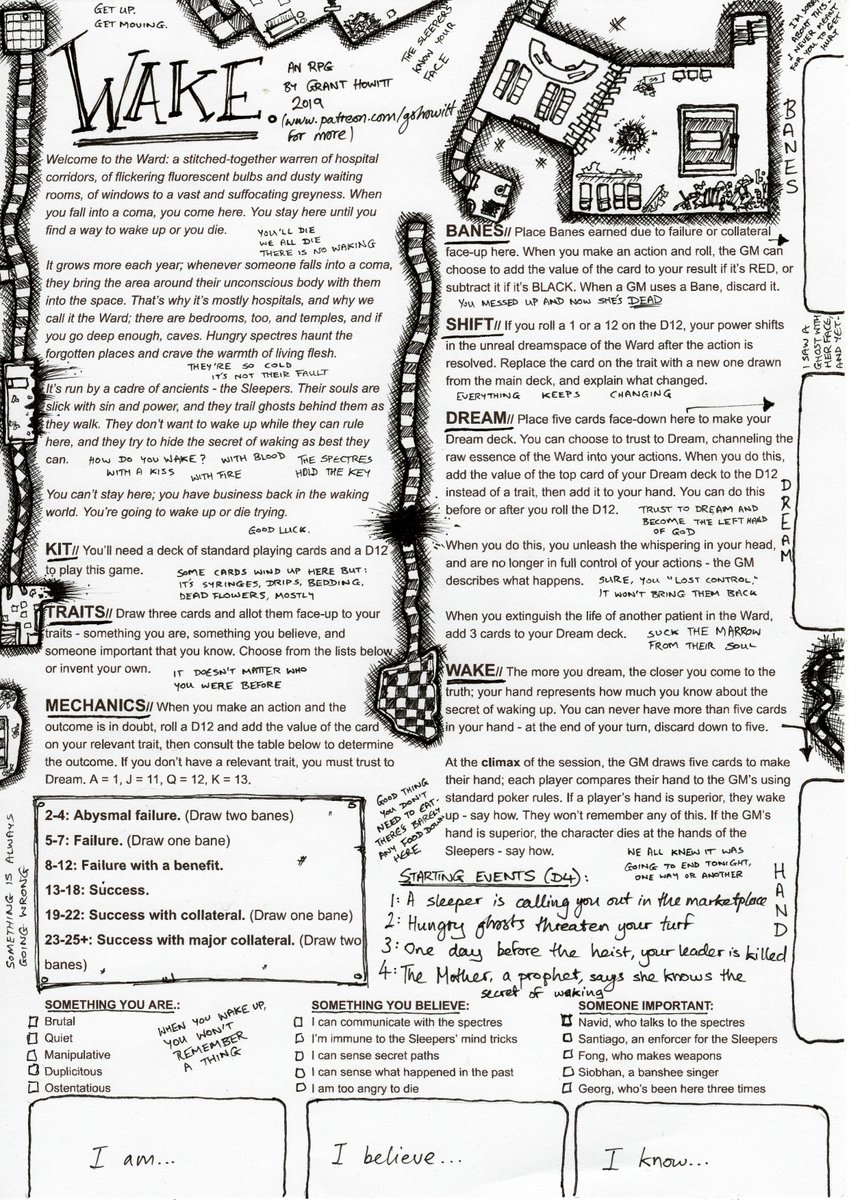 GET UP.
GET MOVING.
THE SLEEPERS
KNOW YOUR
FACE
I'M SORRY
ABOUT THIS
I NEVER MEANT
FOR YOU TO GET
HURT
WAKE.
AN RPG
BY GRANT HOWITT
2019
(www.patreon.com/gshowitt
for more)
Welcome to the Ward: a stitched-together warren of hospital
corridors, of flickering fluorescent bulbs and dusty waiting
rooms, of windows to a vast and suffocating greyness. When
you fall into a coma, you come here. You stay here until you
find a way to wake up or you die.
YOU'LL DIE
WE ALL DIE
THERE IS NO WAKING
It grows more each year; whenever someone falls into a coma,
they bring the area around their unconscious body with them
into the space. That's why it's mostly hospitals, and why we
call it the Ward; there are bedrooms, too, and temples, and if
you go deep enough, caves. Hungry spectres haunt the
forgotten places and crave the warmth of living flesh.
THEY'RE SO COLD
IT'S NOT THEIR FAULT
It's run by a cadre of ancients - the Sleepers. Their souls are
slick with sin and power, and they trail ghosts behind them as
they walk. They don't want to wake up while they can rule
here, and they try to hide the secret of waking as best they
can.
HOW DO YOU WAKE? WITH BLOOD THE SPECTRES
WITH A KISS WITH FIRE HOLD THE KEY
You can't stay here; you have business back in the waking
world. You're going to wake up or die trying.
GOOD LUCK.
KIT// You'll need a deck of standard playing cards and a D12
to play this game.
SOME CARDS WIND UP HERE BUT:
IT'S SYRINGES, DRIPS, BEDDING,
DEAD FLOWERS, MOSTLY
TRAITS// Draw three cards and allot them face-up to your
traits - something you are, something you believe, and
someone important that you know. Choose from the lists below
or invent your own.
IT DOESN'T MATTER WHO
YOU WERE BEFORE
MECHANICS// When you make an action and the
outcome is in doubt, roll a D12 and add the value of the card
on your relevant trait, then consult the table below to determine
the outcome. If you don't have a relevant trait, you must trust to
Dream. A = 1, J = 11, Q = 12, K = 13.
SOMETHING IS ALWAYS
GOING WRONG
2-4: Abysmal failure. (Draw two banes)
5-7: Failure. (Draw one bane)
8-12: Failure with a benefit.
13-18: Success.
19-22: Success with collateral. (Draw one bane)
23-25+: Success with major collateral. (Draw two
banes)
BANES
BANES// Place Banes earned due to failure or collateral
face-up here. When you make an action and roll, the GM can
choose to add the value of the card to your result if it's RED, or
subtract it if it's BLACK. When a GM uses a Bane, discard it.
YOU MESSED UP AND NOW SHE'S DEAD
SHIFT// If you roll a 1 or a 12 on the D12, your power shifts
in the unreal dreamspace of the Ward after the action is
resolved. Replace the card on the trait with a new one drawn
from the main deck, and explain what changed.
EVERYTHING KEEPS CHANGING
I SAW A
GHOST WITH
HER FACE,
AND YET-
DREAM// Place five cards face-down here to make your
Dream deck. You can choose to trust to Dream, channeling the
raw essence of the Ward into your actions. When you do this,
add the value of the top card of your Dream deck to the D12
instead of a trait, then add it to your hand. You can do this
before or after you roll the D12.
TRUST TO DREAM AND
BECOME THE LEFT HAND
OF GOD
DREAM
When you do this, you unleash the whispering in your head,
and are no longer in full control of your actions - the GM
describes what happens.
SURE, YOU "LOST CONTROL,"
IT WON'T BRING THEM BACK
When you extinguish the life of another patient in the Ward,
add 3 cards to your Dream deck.
SUCK THE MARROW
FROM THEIR SOUL
WAKE// The more you dream, the closer you come to the
truth; your hand represents how much you know about the
secret of waking up. You can never have more than five cards
in your hand - at the end of your turn, discard down to five.
At the climax of the session, the GM draws five cards to make
their hand; each player compares their hand to the GM's using
standard poker rules. If a player's hand is superior, they wake
up - say how. They won't remember any of this. If the GM's
hand is superior, the character dies at the hands of the
Sleepers - say how.
WE ALL KNEW IT WAS
GOING TO END TONIGHT,
ONE WAY OR ANOTHER
GOOD THING
YOU DON'T
NEED TO EAT-
THERE'S BARELY
ANY FOOD DOWN
HERE
HAND
STARTING EVENTS (D4):
1: A sleeper is calling you out in the marketplace
2: Hungry ghosts threaten your turf
3: One day before the heist, your leader is killed
4: The Mother, a prophet, says she knows the
secret of waking
SOMETHING YOU ARE.:
Brutal
Quiet
Manipulative
Duplicitous
Ostentatious
WHEN YOU WAKE UP,
YOU WON'T
REMEMBER
A THING
SOMETHING YOU BELIEVE:
I can communicate with the spectres
I'm immune to the Sleepers' mind tricks
I can sense secret paths
I can sense what happened in the past
I am too angry to die
SOMEONE IMPORTANT:
Navid, who talks to the spectres
Santiago, an enforcer for the Sleepers
Fong, who makes weapons
Siobhan, a banshee singer
Georg, who's been here three times
I am...
I believe...
I know...